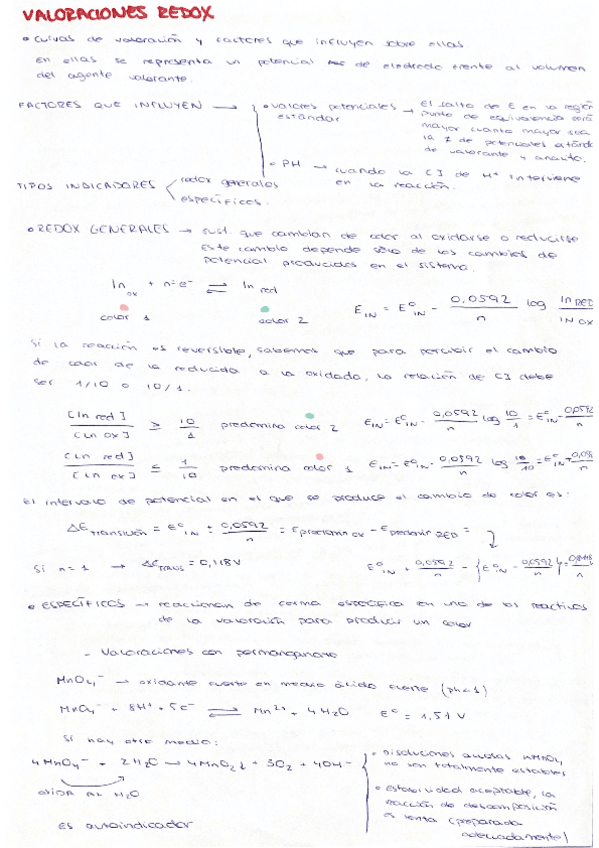 VALORACIONES REDOX
• Curvas de valoración y factores que influyen sobre ellas
en ellas se representa un potencial de electrodo frente al volumen
del agente valorante.
FACTORES QUE INFLUYEN → • valores potenciales estándar → El salto de E en la región
punto de equivalencia será
mayor cuanto mayor sea
la ≠ de potenciales estánd
de valorante y analito.
• PH → cuando la [] de H⁺ interviene
en la reacción.
TIPOS INDICADORES redox generales
específicos.
• REDOX GENERALES → sust. que cambian de color al oxidarse o reducirse
Este cambio depende sólo de los cambios de
potencial producidos en el sistema.
In ox + n·e⁻ ⇌ In red
color 1 color 2 E IN = E° IN - 0,0592/n log In RED/IN OX
Si la reacción es reversible, sabemos que para percibir el cambio
de color de la reducida a la oxidada, la relación de [] debe
ser 1/10 o 10/1.
[In red]/[In ox] ≥ 10/1 predomina color 2 E IN = E° IN - 0,0592/n log 10/1 = E° IN - 0,0592/n
[In red]/[In ox] ≤ 1/10 predomina color 1 E IN = E° IN - 0,0592/n log 10/10 = E° IN + 0,059/n
El intervalo de potencial en el que se produce el cambio de color es:
ΔE transición = E° IN ± 0,0592/n = E predomin ox - E predomin RED =
Si n = 1 → ΔE TRANS = 0,118V E° IN + 0,0592/n - {E° IN - 0,0592/n} =
• ESPECÍFICOS → reaccionan de forma específica en uno de los reactivos
de la valoración para producir un color
- Valoraciones con permanganato
MnO₄⁻ → oxidante fuerte en medio ácido fuerte (ph<1)
MnO₄⁻ + 8H⁺ + 5e⁻ ⇌ Mn²⁺ + 4H₂O E° = 1,51 V
Si hay otro medio:
4MnO₄⁻ + 2H₂O → 4MnO₂↓ + 3O₂ + 4OH⁻
OXIDA AL H₂O
es autoindicador
• disoluciones acuosas KMnO₄
no son totalmente estables
• estabilidad aceptable, la
reacción de descomposición
es lenta (preparada
adecuadamente)